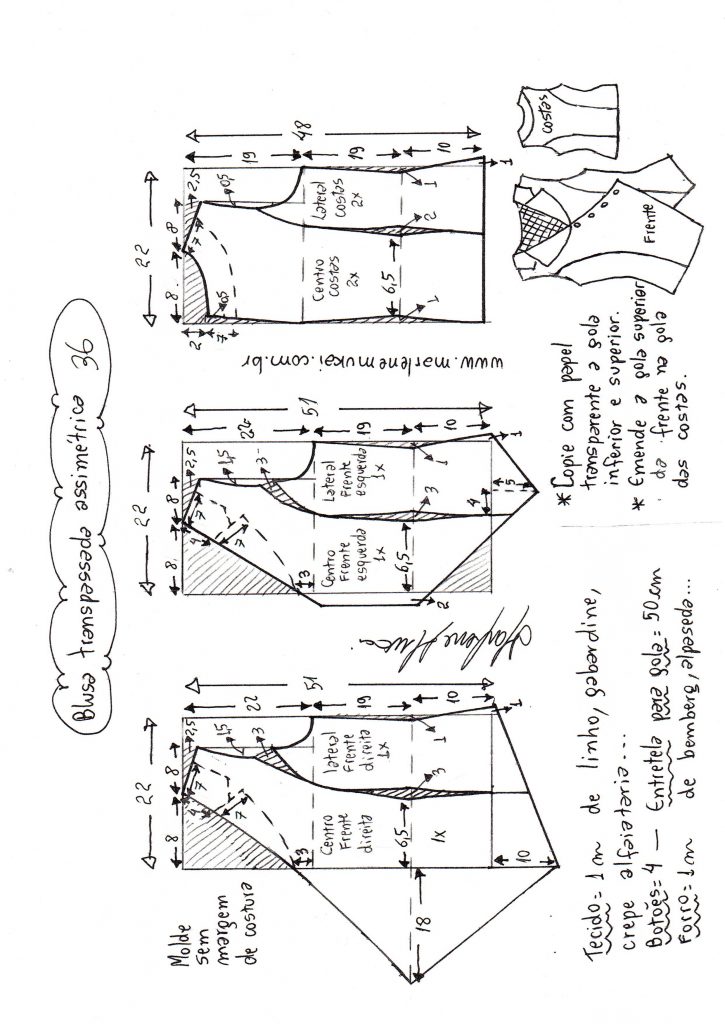 Blusa transpassada assimétrica 36
22
8
8
4
7
7
2,5
1,5
3
22
51
19
10
3
Centro
Frente
direita
1x
lateral
Frente
direita
1x
6,5
3
1
1
18
10
Molde
sem
margem
de costura
22
8
8
4
7
7
2,5
1,5
3
22
51
19
10
3
Centro
Frente
esquerda
1x
Lateral
Frente
esquerda
1x
6,5
3
1
1
2
4
5
www.marlenemukai.com.br
22
8
8
2
7
7
2,5
0,5
0,5
19
48
19
10
Centro
costas
2x
Lateral
costas
2x
6,5
2
1
1
1
Tecido = 1m de linho, gabardine,
crepe alfaiataria...
Botões = 4 — Entretela para gola = 50cm
Forro = 1m de bemberg, alpaseda...
* Copie com papel
transparente a gola
inferior e superior.
* Emende a gola superior
da frente na gola
das costas.
Frente
costas